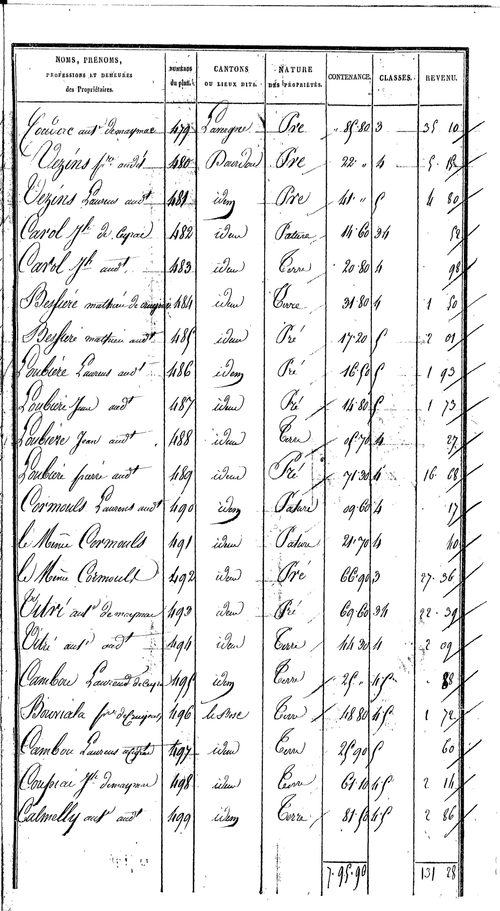 NOMS, PRÉNOMS, PROFESSIONS ET DEMEURES des Propriétaires. NUMÉROS du plan. CANTONS OU LIEUX DITS. NATURE DES PROPRIÉTÉS. CONTENANCE. CLASSES. REVENU.
ant.e demaymac 479 Lanegre Pré " 85.80 3 35 10
Vezins p.re aud.t 480 Bourdou Pre 22 " 4 5 18
Vezins Laurens aud.t 481 idem Pre 41 " 5 4 80
Carol J.h de Ceyrac 482 idem Pature 14.60 34 52
Carol J.h aud.t 483 idem Terre 20.80 4 98
Bessiere mathieu de 484 idem Terre 31.80 4 1 50
Bessiere mathieu aud.t 485 idem Pré 17.20 5 2 01
Loubiere Laurens aud.t 486 idem Pré 16.50 5 1 93
Loubiere Jean aud.t 487 idem Pré 14.80 5 1 73
Loubiere Jean aud.t 488 idem Terre 05.70 4 27
Loubiere pierre aud.t 489 idem Pré 71.30 4 16 68
Cormouls Laurens aud.t 490 idem Pature 09.60 4 17
le Même Cormouls 491 idem Pature 21.70 4 40
le Même Cormouls 492 idem Pré 66.90 3 27.36
Vitré ant.e demaymac 493 idem Pré 69.60 34 22.39
Vitré ant.e aud.t 494 idem Terre 44.30 4 2 09
Cambou Laurens de Ceyrac 495 idem Terre 25 " 45 88
Bouviala p.re 496 le Bosc Terre 48 80 45 1 72
Cambou Laurens 497 idem Terre 25.90 5 60
J.h demaymac 498 idem Terre 61.10 45 2 14
Calmelly ant.e aud.t 499 idem Terre 81.50 45 2 86
7.95.90 131 28